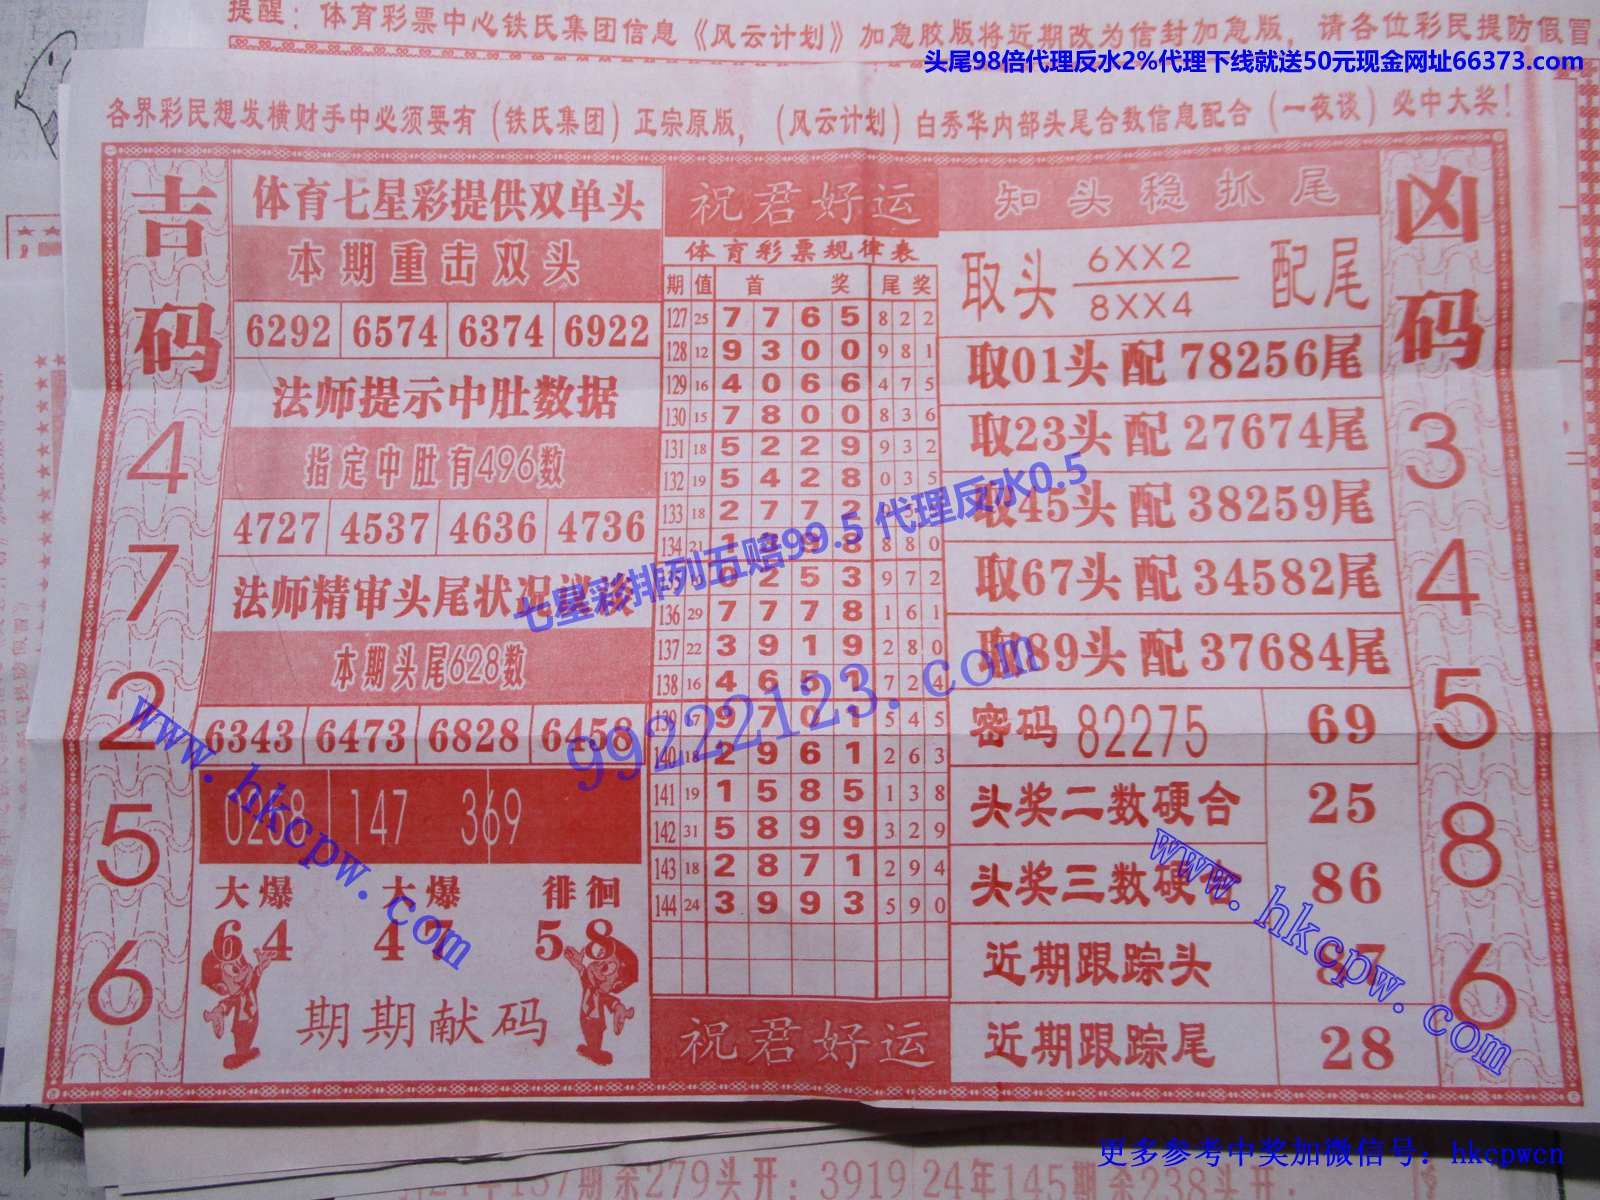 提醒：体育彩票中心铁氏集团信息《风云计划》加急胶版将近期改为信封加急版，请各位彩民提防假冒
头尾98倍代理反水2%代理下线就送50元现金网址66373.com
各界彩民想发横财手中必须要有（铁氏集团）正宗原版，（风云计划）白秀华内部头尾合数信息配合（一夜谈）必中大奖！
吉码
4
7
2
5
6
体育七星彩提供双单头
本期重击双头
6292 6574 6374 6922
法师提示中肚数据
指定中肚有496数
4727 4537 4636 4736
法师精审头尾状况
本期头尾628数
6343 6473 6828 6458
147 369
大爆 大爆 徘徊
64 47 58
期期献码
祝君好运
体育彩票规律表
期 值 首 奖 尾 奖
127 25 7 7 6 5 8 2 2
128 12 9 3 0 0 9 8 1
129 16 4 0 6 6 4 7 5
130 15 7 8 0 0 8 3 6
131 18 5 2 2 9 9 3 2
132 19 5 4 2 8 0 3 5
133 18 2 7 7 2
134 21 8 8 0
0 2 5 3 9 7 2
136 29 7 7 7 8 1 6 1
137 22 3 9 1 9 2 8 0
138 16 4 6 5 1 7 2 4
139 17 9 7 0 1 5 4 5
140 18 2 9 6 1 2 6 3
141 19 1 5 8 5 1 3 8
142 31 5 8 9 9 3 2 9
143 18 2 8 7 1 2 9 4
144 24 3 9 9 3 5 9 0
祝君好运
知头稳抓尾
取头 6XX2 配尾
8XX4
取01头 配 78256尾
取23头 配 27674尾
取45头 配 38259尾
取67头 配 34582尾
取89头 配 37684尾
密码 82275 69
头奖二数硬合 25
头奖三数硬合 86
近期跟踪头 87
近期跟踪尾 28
凶码
3
4
5
8
6
七星彩排列五赔99.5 代理反水0.5
99222123.com
www.hkcpw.com
www.hkcpw.com
更多参考中奖加微信号：hkcpwcn
137期杀279头开：3919 24年145期杀238头开：